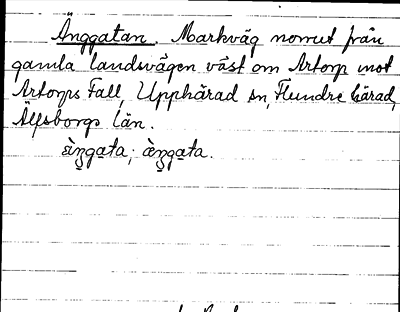 Änggatan. Markväg norrut från
gamla landsvägen väst om Artorp mot
Artorps Fall, Upphärad sn, Flundre härad,
Älfsborgs län.